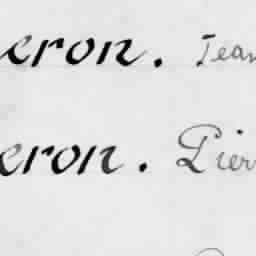 eron. Jean
eron. Pier